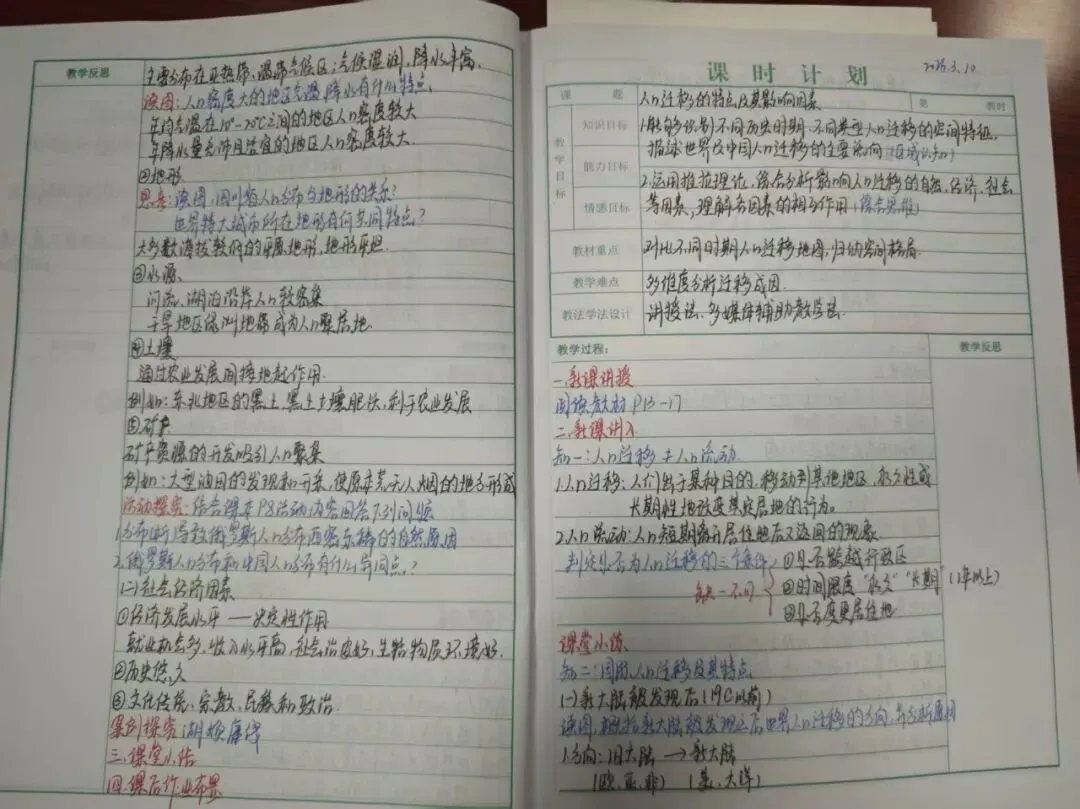 教学反思
主要分布在亚热带、温带气候区；气候温润，降水丰富、
读图：人口密度大的地区气温、降水有什么特点，
年均气温在10°-20℃之间的地区人口密度较大
年降水量充沛且适宜的地区人口密度较大.
②地形
思考：读图，四川省人口分布与地形的关系？
世界特大城市所在地形有何共同特点？
大多数海拔较低的平原地形，地形平坦.
③水源、
河流、湖泊沿岸人口较密集
干旱地区绿洲地带成为人口聚居地
④土壤
通过农业发展间接地起作用.
例如：东北地区的黑土，黑土土壤肥沃，利于农业发展
⑤矿产
矿产资源的开发吸引人口聚集
例如：大型油田的发现和开采，使原本荒无人烟的地方形成
活动探究：结合课本P8活动内容回答下列问题
1.分析导致俄罗斯人口分布西密东稀的自然原因
2.俄罗斯人口分布和中国人口分布有什么异同点？
(二)社会经济因素
①经济发展水平 —— 决定性作用
就业机会多，收入水平高，社会治安好，生活物质环境好.
②历史悠久
③文化传统、宗教、民族和政治.
案例探究 湖焕庸线
三.课堂小结
四.课后作业布置
课时计划
2026.3.10
课题
人口迁移的特点及其影响因素
第 课时
教学目标
知识目标
能力目标
情感目标
1.能够识别不同历史时期、不同类型人口迁移的空间特征，
描述世界及中国人口迁移的主要流向（区域认知）
2.运用推拉理论，综合分析影响人口迁移的自然、经济、社会
等因素，理解各因素的相互作用（综合思维）
教材重点
对比不同时期人口迁移地图，归纳空间格局.
教学难点
多维度分析迁移成因.
教法学法设计
讲授法、多媒体辅助教学法.
教学过程：
教学反思
一.新课讲授
阅读教材P13-17
二.新课讲入
知一：人口迁移≠人口流动
1.人口迁移：人们出于某种目的，移动到其他地区，永久性或
长期性地改变其定居地的行为。
2.人口流动：人口短期离开居住地后又返回的现象
判定是否为人口迁移的三个条件
缺一不可
①是否跨越行政区
②时间限度“永久”“长期”（1年以上）
③是否变更居住地
课堂小练、
知二：国际人口迁移及其特点
(一)新大陆被发现后（19C以前）
读图，概括新大陆被发现之后世界人口迁移的方向，并分析原因
1.方向：旧大陆 → 新大陆
（欧、亚、非）（美、大洋）